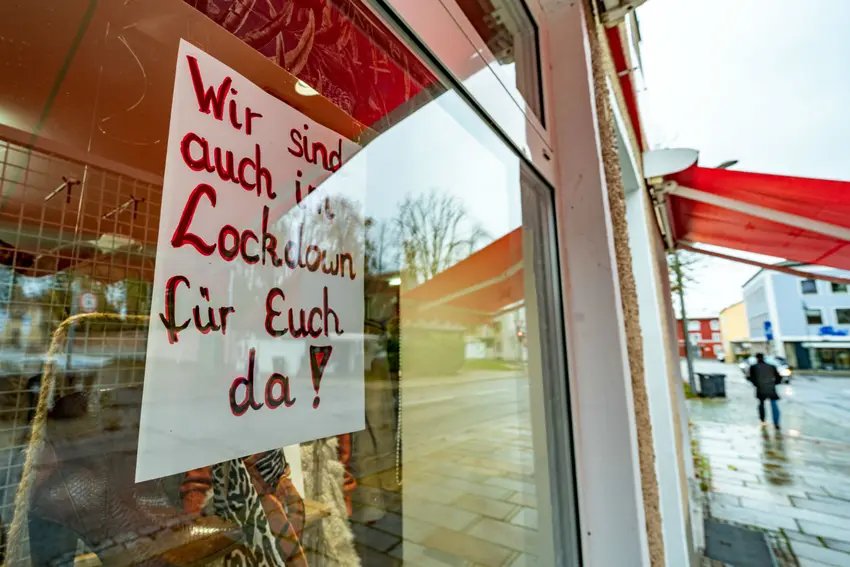 Wir sind
auch im
Lockdown
für Euch
da!